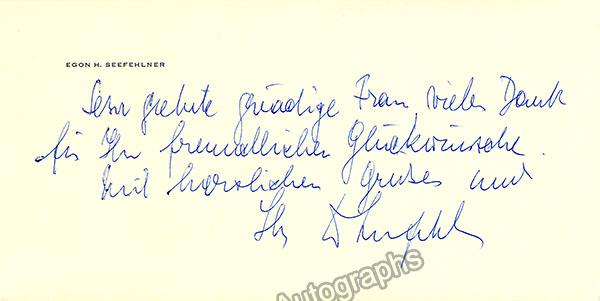 EGON H. SEEFEHLNER
Sehr geehrte gnädige Frau vielen Dank
für Ihre freundlichen Glückwünsche.
Mit herzlichen Grüßen
Ihr
Autographs